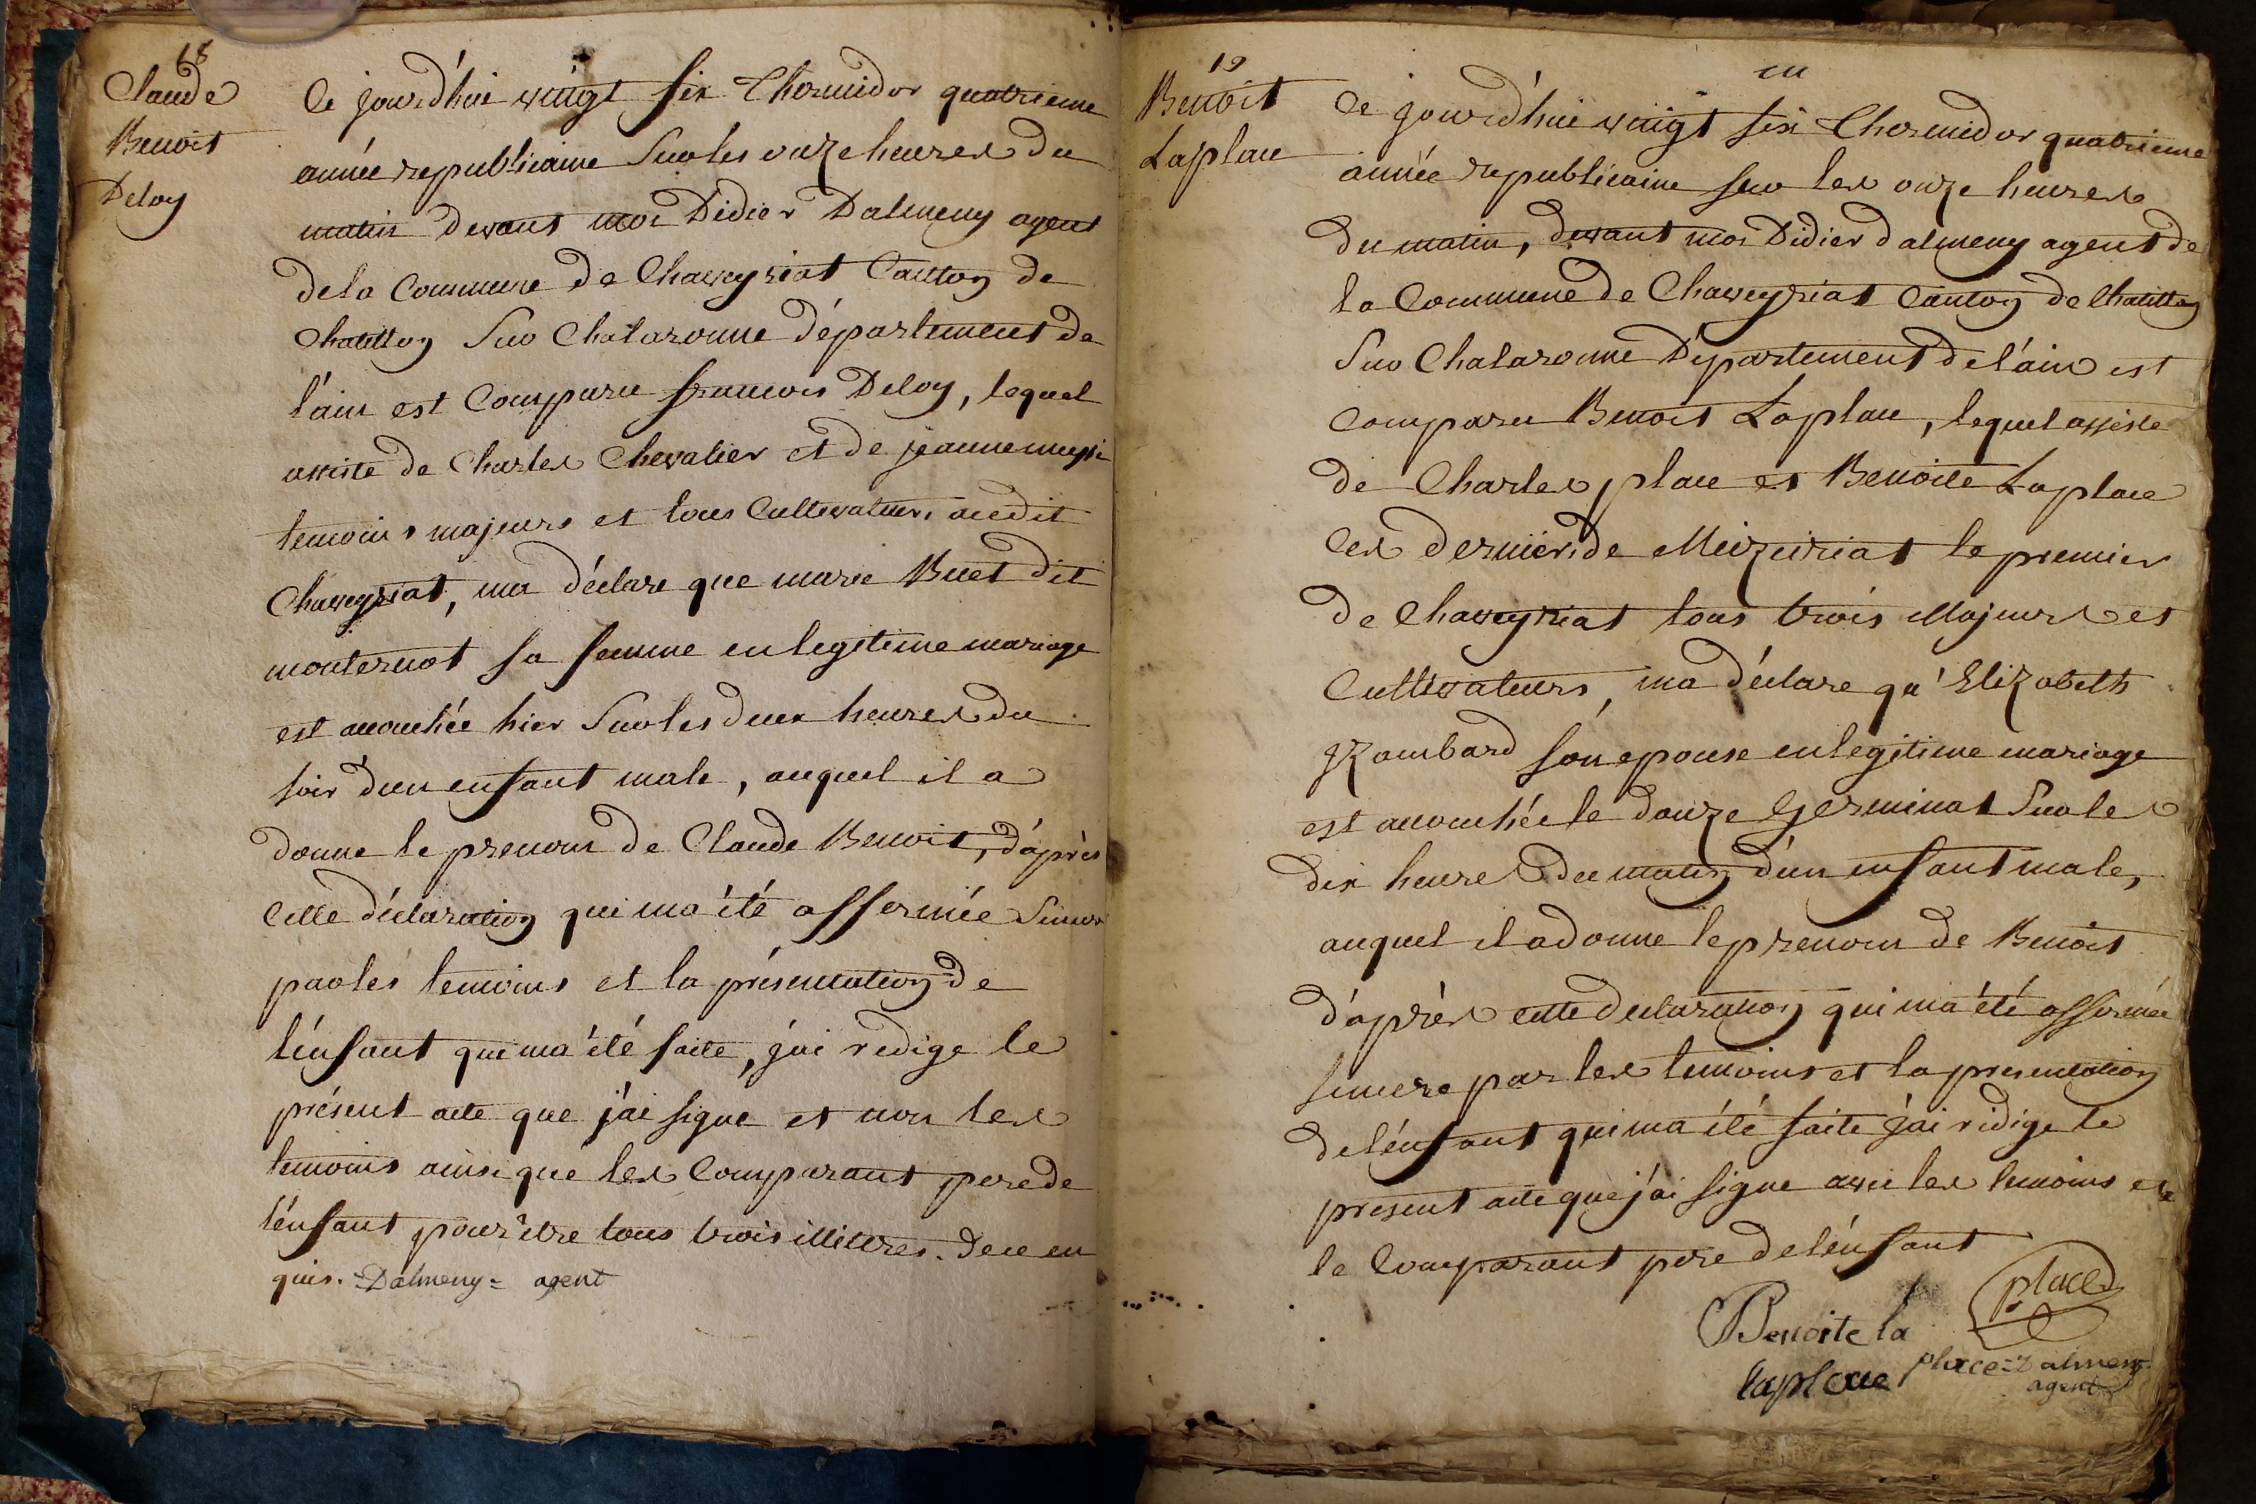 18
Claude
Benoit
Deloy
Ce jourd'hui vingt six Thermidor quatrieme
année republicaine Sur les onze heures du
matin devant moi Didier Dalmeny agent
de la Commune de Chaveyriat Canton de
Chatillon Sur Chalaronne département de
l'ain est Comparu francois Deloy, lequel
assiste de Charles Chevalier et de jeanne
temoins majeurs et tous Cultivateurs audit
Chaveyriat, ma déclare que marie Buet dit
monternot sa femme en legitime mariage
est accouchée hier Sur les deux heures du
soir d'un enfant male, auquel il a
donne le prenom de Claude Benoit, d'après
Cette déclaration qui ma été affermée Sincer
par les temoins et la présentation de
l'énfant qui ma été faite, j'ai redige le
présent acte que j'ai signe et non les
temoins ainsi que les Comparant pere de
l'énfant pour être tous trois illittres. De ce en
quis. = Dalmeny = agent
19
Benoit
Laplace
Ce jourd'hui vingt six Thermidor quatrieme
année republicaine sur les onze heures
du matin, devant moi Didier dalmeny agent de
la Commune de Chaveyriat Canton de Chatillon
Sur Chalaronne Département de l'ain est
Comparu Benoit Laplace, lequel assiste
de Charles place et Benoite Laplace
Ces derniers de Meizeiriat le premier
de Chaveyriat tous trois Majeurs et
Cultivateurs, ma déclare qu'Elizabeth
son epouse en legitime mariage
est accouchée le douze Germinal Sur les
dix heures du matin d'un enfant male,
auquel il a donne le prenom de Benoit
d'aprèx cette declaration qui ma été affermée
sincere par les temoins et la presentation
de l'énfant qui ma été faite j'ai rédige le
present acte que j'ai signe avec les temoins et
le Comparant pere de l'énfant
place
Benoite la
place = Dalmeny
laplace
agent